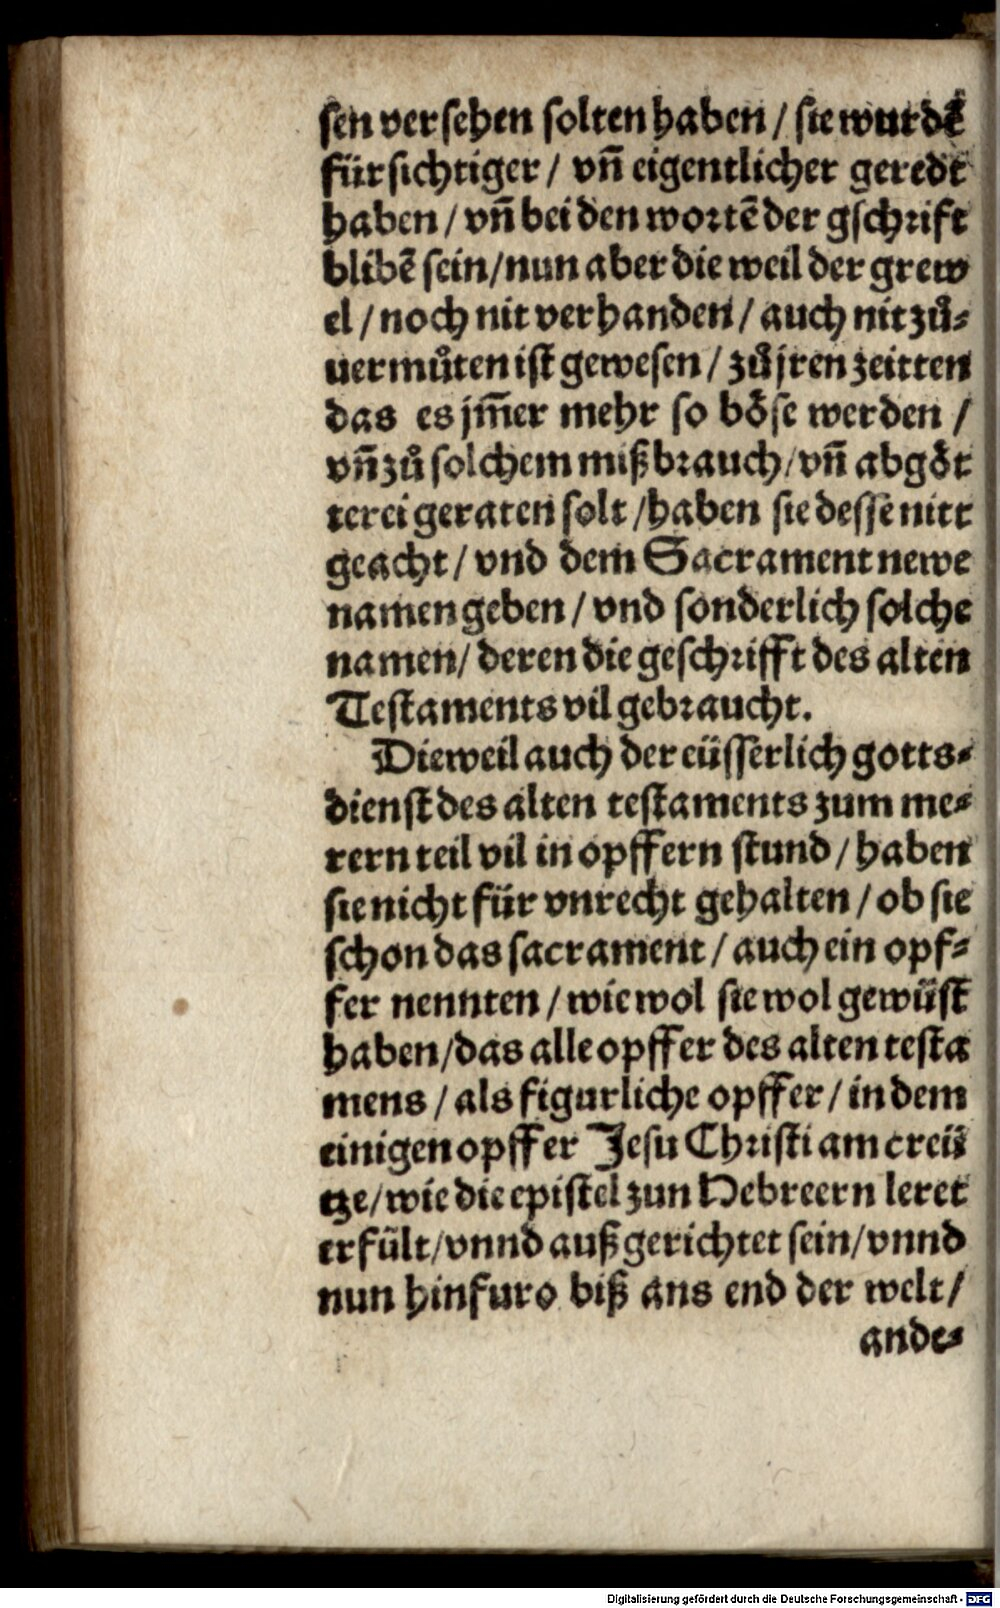 sen versehen solten haben / sie wurdē
fürsichtiger / vñ eigentlicher geredt
haben / vñ bei den wortē der gschrift
blibē sein / nun aber die weil der grew
el / noch nit verhanden / auch nit zů-
uermůten ist gewesen / zů jren zeitten
das es jm̄er mehr so böse werden /
vñ zů solchem mißbrauch / vñ abgöt
terei geraten solt / haben sie desse nitt
geacht / vnd dem Sacrament newe
namen geben / vnd sonderlich solche
namen / deren die geschrifft des alten
Testaments vil gebraucht.
Dieweil auch der eüsserlich gotts-
dienst des alten testaments zum me-
rern teil vil in opffern stund / haben
sie nicht für vnrecht gehalten / ob sie
schon das sacrament / auch ein opf-
fer nennten / wiewol sie wol gewüst
haben / das alle opffer des alten testa
mens / als figurliche opffer / in dem
einigen opffer Jesu Christi am creü
tze / wie die epistel zun Hebreern leret
erfült / vnnd außgerichtet sein / vnnd
nun hinfuro biß ans end der welt /
ande-
Digitalisierung gefördert durch die Deutsche Forschungsgemeinschaft - DFG